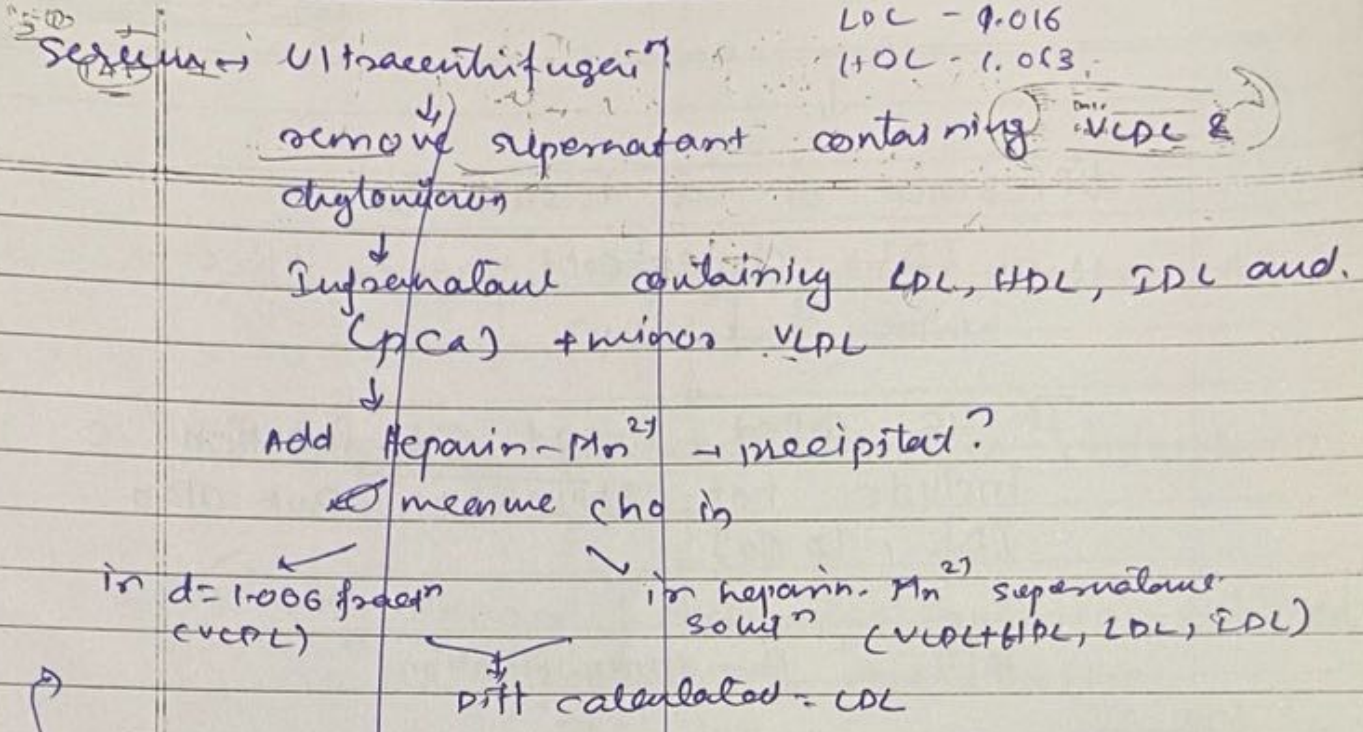 LDL - 1.016
Serum → Ultracentrifugaiⁿ
HDL - 1.063
↓
remove supernatant containing VLDL &
chylomicron
↓
Infranatant containing LDL, HDL, IDL and
(p(a) + minor VLDL
↓
Add Heparin-Mn²⁺ → precipitatⁿ
measure cho in
in d=1.006 fractⁿ
in heparin-Mn²⁺ supernatant
(VLDL)
soluⁿ (VLDL+HDL, LDL, IDL)
Diff calculated = LDL